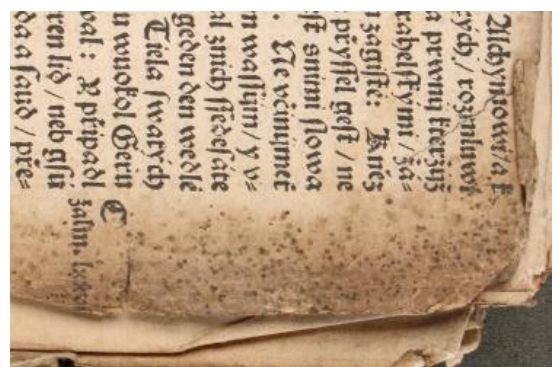 Alchymowi / a k
rých / rozmluwi
a prwnij kteřijž
rahelſkými / žá=
n zagiſté: Kněz
přyſſel geſt / ne
ſt ſnimi ſlowa
. Ne včinijmeť
m waſſijm / y v=
al znich ſſedeſáte
geden den wedlé
Tiela ſwatých
u wuokol Geru
wal : Y připadl
ren lid / neb gſú
da a ſaud / pře=
C
žalm.